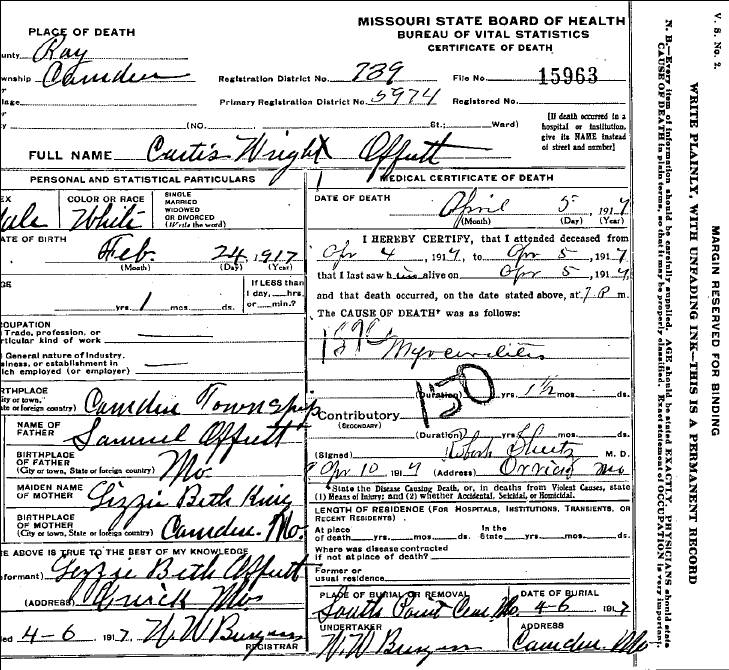 MISSOURI STATE BOARD OF HEALTH
BUREAU OF VITAL STATISTICS
CERTIFICATE OF DEATH
PLACE OF DEATH
unty Ray
wnship Camden
or
lage
or
y (NO. St.; Ward)
Registration District No. 739 File No. 15963
Primary Registration District No. 5974 Registered No.
[If death occurred in a
hospital or institution,
give its NAME instead
of street and number]
FULL NAME Curtis Wright Offutt
PERSONAL AND STATISTICAL PARTICULARS
EX
ale
COLOR OR RACE
White
SINGLE
MARRIED
WIDOWED
OR DIVORCED
(Write the word)
ATE OF BIRTH
Feb. 24, 1917
(Month) (Day) (Year)
GE
yrs. 1 mos. ds.
If LESS than
1 day,....hrs.
or....min.?
CCUPATION
Trade, profession, or
rticular kind of work
General nature of industry,
siness, or establishment in
ich employed (or employer)
RTHPLACE
ity or town,
ate or foreign country) Camden Township
NAME OF
FATHER Samuel Offutt
BIRTHPLACE
OF FATHER
(City or town, State or foreign country) Mo.
MAIDEN NAME
OF MOTHER Lizzie Beth King
BIRTHPLACE
OF MOTHER
(City or town, State or foreign country) Camden. Mo.
E ABOVE IS TRUE TO THE BEST OF MY KNOWLEDGE
formant) Lizzie Beth Offutt
(ADDRESS) Orrick Mo
led 4-6, 1917. W W
REGISTRAR
MEDICAL CERTIFICATE OF DEATH
DATE OF DEATH
April 5, 1917
(Month) (Day) (Year)
I HEREBY CERTIFY, that I attended deceased from
Apr 4, 1917, to Apr 5, 1917,
that I last saw him alive on Apr 5, 1917,
and that death occurred, on the date stated above, at 7 P m.
The CAUSE OF DEATH* was as follows:
150
(Duration) yrs. 1½ mos. ds.
Contributory
(SECONDARY)
(Duration) yrs. mos. ds.
(Signed) M. D.
Apr 10, 1917 (Address) Orrick Mo
*State the Disease Causing Death, or, in deaths from Violent Causes, state
(1) Means of Injury; and (2) whether Accidental, Suicidal, or Homicidal.
LENGTH OF RESIDENCE (FOR HOSPITALS, INSTITUTIONS, TRANSIENTS, OR
RECENT RESIDENTS)
At place In the
of death yrs. mos. ds. State yrs. mos. ds.
Where was disease contracted
if not at place of death?
Former or
usual residence
PLACE OF BURIAL OR REMOVAL
South Point Cem. Mo.
DATE OF BURIAL
4-6 1917
UNDERTAKER
W. W.
ADDRESS
Camden. Mo
V. S. No. 2.
MARGIN RESERVED FOR BINDING
WRITE PLAINLY, WITH UNFADING INK—THIS IS A PERMANENT RECORD
N. B.—Every item of information should be carefully supplied. AGE should be stated EXACTLY. PHYSICIANS should state
CAUSE OF DEATH in plain terms, so that it may be properly classified. Exact statement of OCCUPATION is very important.